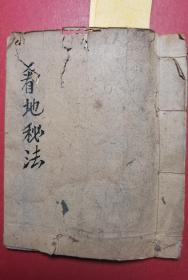 看地秘法